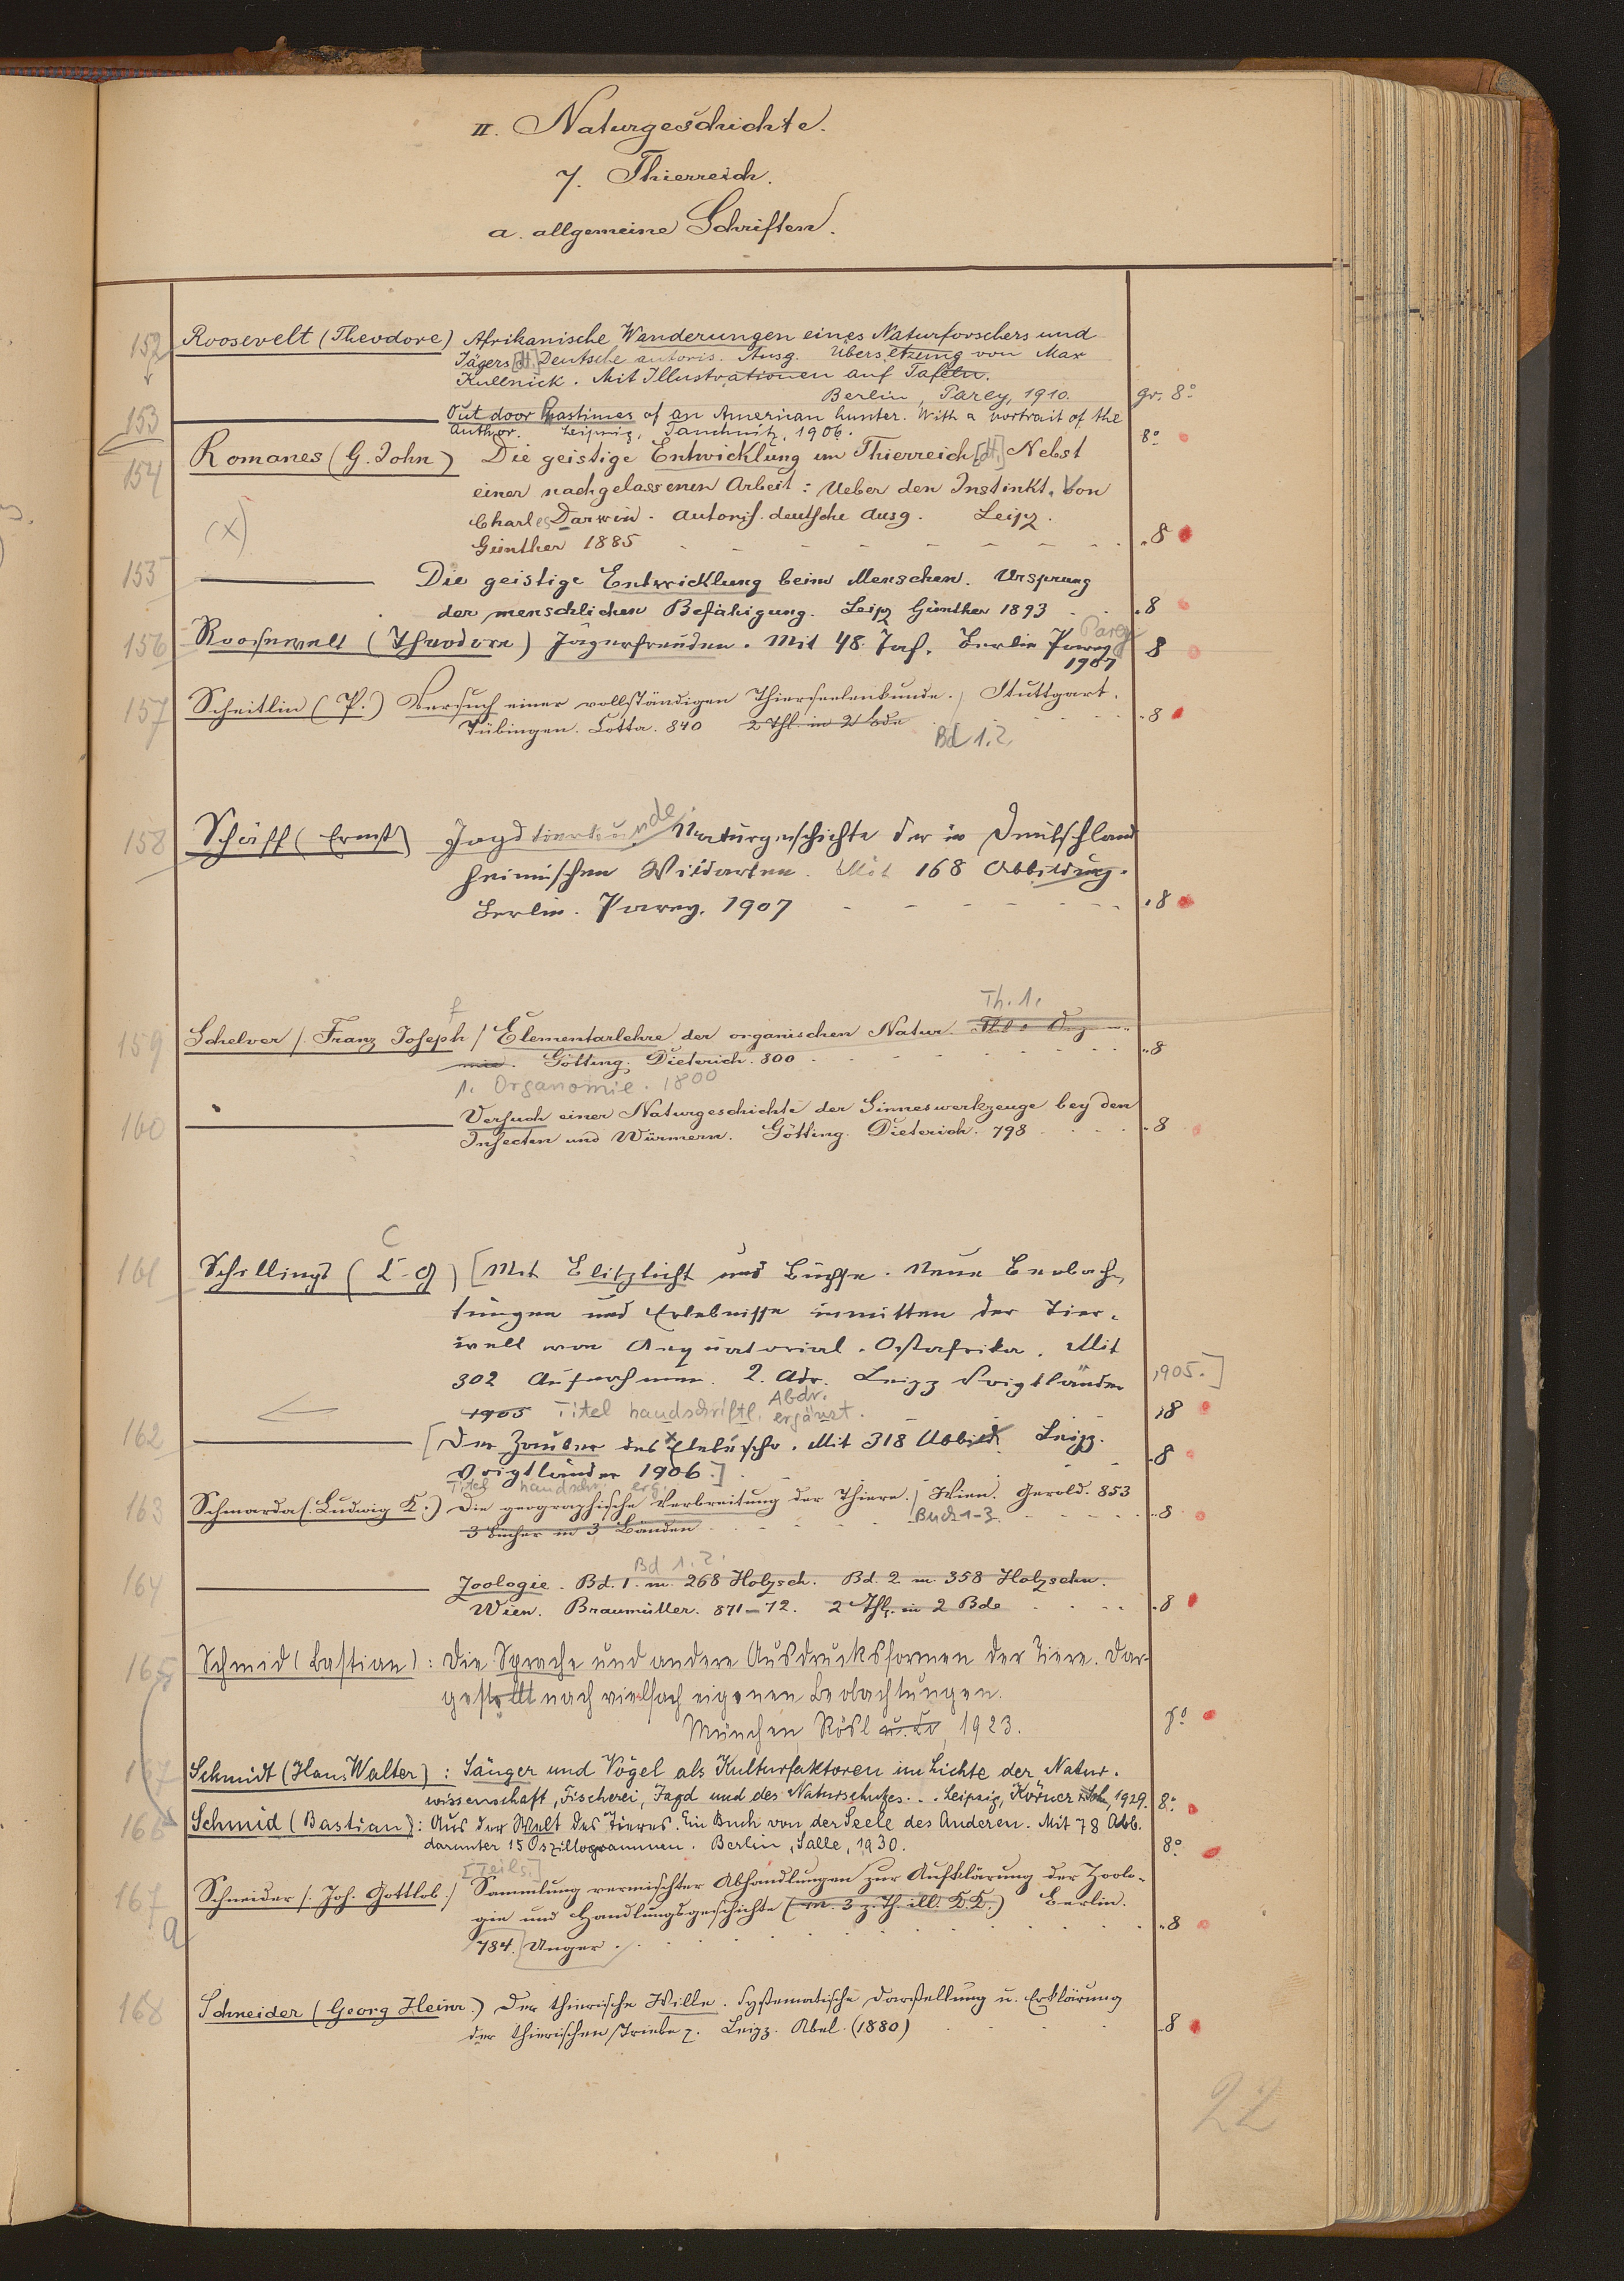 II. Naturgeschichte.
7. Thierreich.
a. allgemeine Schriften.
152 Roosevelt (Theodore) Afrikanische Wanderungen eines Naturforschers und
Jägers [dt.] Deutsche autoris. Ausg. Übersetzung von Max
Kullnick. Mit Illustrationen auf Tafeln.
Berlin, Parey, 1910. gr. 8°
153 Out door Pastimes of an American hunter. With a portrait of the
Author. Leipzig, Tauchnitz, 1906. 8°
154 Romanes (G. John) Die geistige Entwicklung im Thierreich [dt.] Nebst
einer nachgelassenen Arbeit: Ueber den Instinkt. Von
(x) Charles Darwin. Autoris. deutsche Ausg. Leipz.
Günther 1885 8
155 Die geistige Entwicklung beim Menschen. Ursprung
der menschlichen Befähigung. Leipz Günther 1893 8
Parey
156 Roosewelt (Theodore) Jägerfreuden. Mit 48 Taf. Berlin Parey 8
1907
157 Scheitlin (P.) Versuch einer vollständigen Thierseelenkunde. / Stuttgart.
Tübingen. Cotta. 840 2 Thl. in 2 Bde 8
Bd 1.2.
158 Schäff (Ernst) Jagdtierkunde Naturgeschichte der in Deutschland
heimischen Wildarten. Mit 168 Abbildung.
Berlin. Parey. 1907 8
f Th. 1.
159 Schelver /. Franz Joseph / Elementarlehre der organischen Natur. Thl. 1 Organo-
mie. Götting. Dieterich. 800 8
1. Organomie. 1800
160 Versuch einer Naturgeschichte der Sinneswerkzeuge bey den
Insecten und Würmern. Götting. Dieterich. 798 8
C
161 Schillings (C-G) [Mit Blitzlicht und Büchse. Neue Beobach-
tungen und Erlebnisse inmitten der Tier-
welt von Aequatorial-Ostafrika. Mit
302 Aufnahmen. 2. Abdr. Leipz Voigtländer 1905.]
Abdr.
1905 Titel handschriftl. ergänzt. 8
162 [Der Zauber des Elelescho. Mit 318 Abbild. Leipz.
Voigtländer 1906.] 8
Titel handschr. erg.
163 Schmarda (Ludwig K.) Die geographische Verbreitung der Thiere. / Wien. Gerold. 853
3 Bücher in 3 Bänden Buch 1-3. 8
Bd 1. 2.
164 Zoologie. Bd. 1. m. 268 Holzsch. Bd. 2 m. 358 Holzschn.
Wien. Braumüller. 871-72. 2 Thl. in 2 Bde 8
165 Schmid (Bastian): Die Sprache und andere Ausdrucksformen der Tiere. Dar-
gestellt nach vielfach eigenen Beobachtungen.
München, Rösl u. Co, 1923. 8°
167 Schmidt (Hans Walter): Sänger und Vögel als Kulturfaktoren im Lichte der Natur.
wissenschaft, Fischerei, Jagd und des Naturschutzes... Leipzig, Körner 1929. 8°
166 Schmid (Bastian): Aus der Welt des Tieres. Ein Buch von der Seele des Anderen. Mit 78 Abb.
darunter 15 Oszillogrammen. Berlin, Salle, 1930. 8°
[Teils.]
167 Schneider /. Joh. Gottlob./ Sammlung vermischter Abhandlungen zur Aufklärung der Zoolo-
a gie und Handlungsgeschichte (m. 3 z. Th. ill. K.K.) Berlin.
784. Unger. 8
168 Schneider (Georg Heinr.) Der thierische Wille. Systematische Darstellung u. Erklärung
der thierischen Triebe z. Leipz. Abel. (1880) 8
22